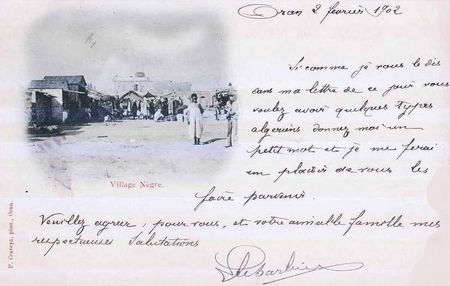 Oran 2 fevrier 1902
Si comme je vous le dis
dans ma lettre de ce jour vous
voulez avoir quelques types
algeriens donnez moi un
petit mot et je me ferai
un plaisir de vous les
faire parvenir.
Village Nègre.
Veuillez agreer, pour vous, et votre aimable famille mes
respectueuses Salutations
P. phot., Oran.